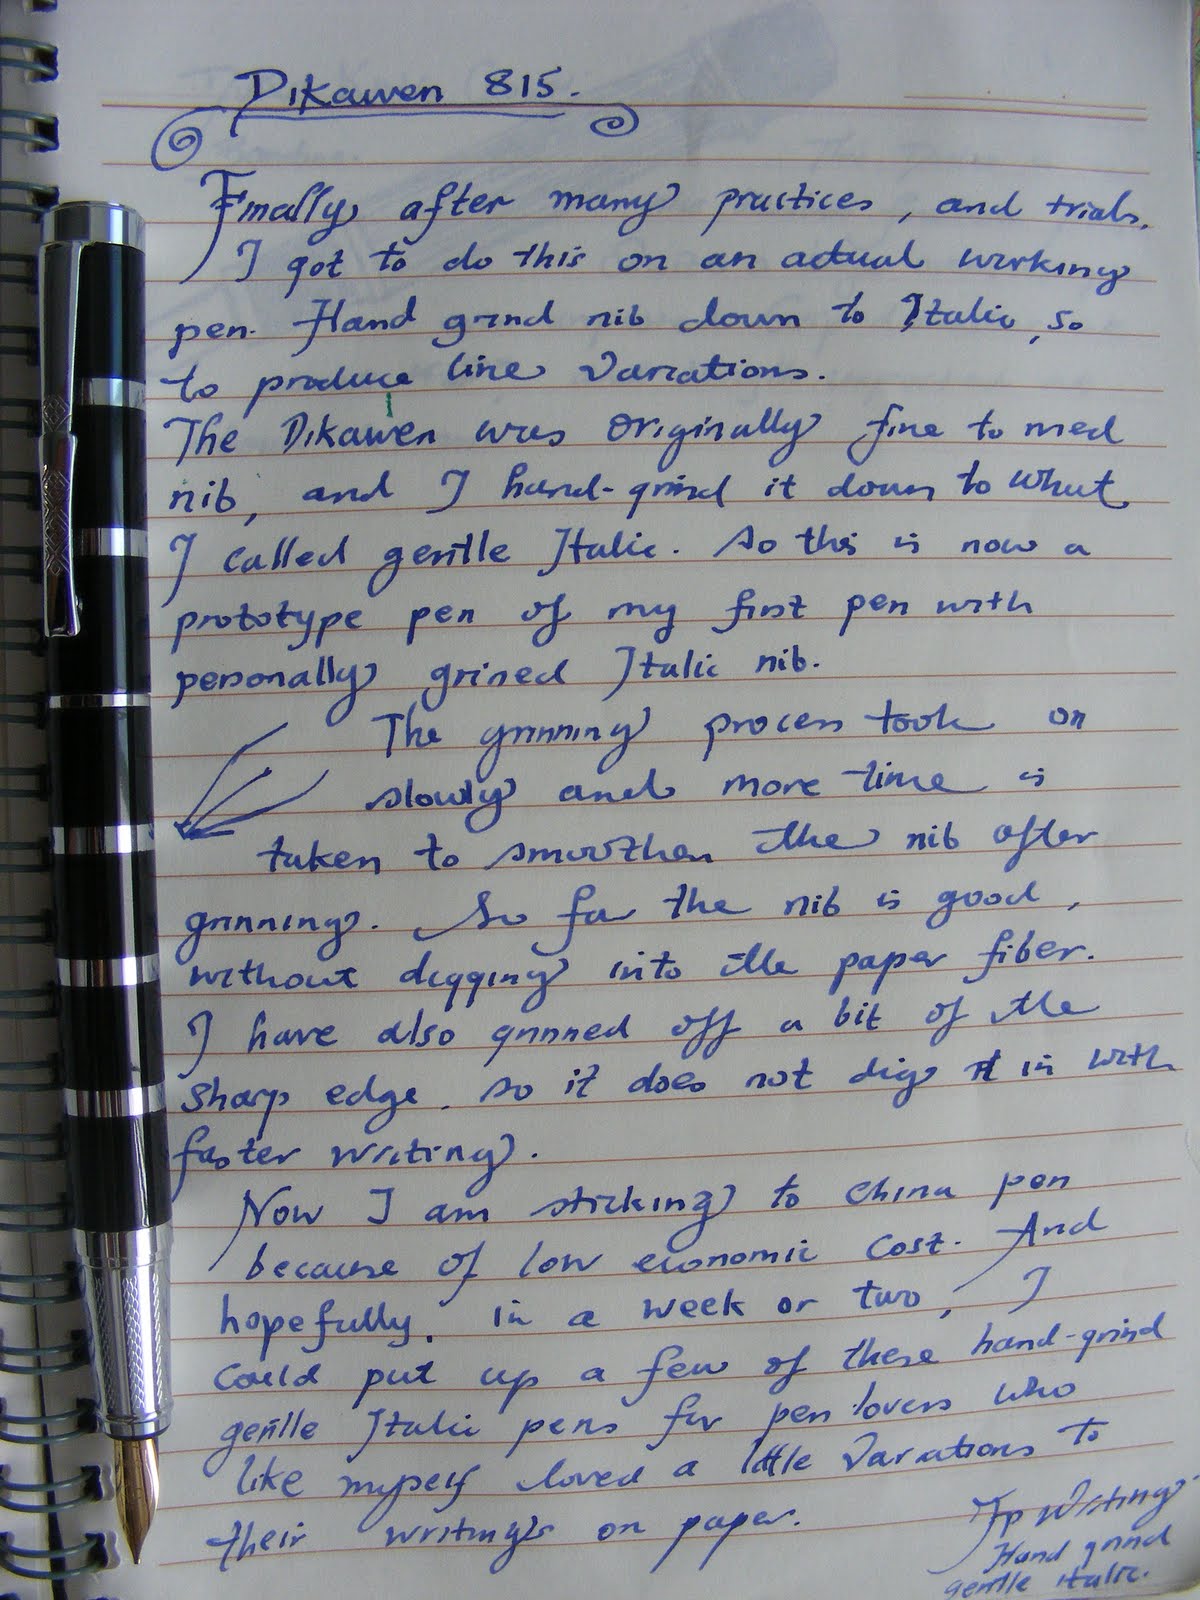 Dikawen 815.
Finally after many practices, and trials.
I got to do this on an actual working
pen. Hand grind nib down to Italic, so
to produce line variations.
The Dikawen was originally fine to med
nib, and I hand-grind it down to what
I called gentle Italic. So this is now a
prototype pen of my first pen with
personally grined Italic nib.
The grinning process took on
slowly and more time is
taken to smoothen the nib after
grinning. So far the nib is good,
without digging into the paper fiber.
I have also grinned off a bit of the
sharp edge. so it does not dig it in with
faster writing.
Now I am sticking to China pen
because of low economic cost. And
hopefully. in a week or two, I
could put up a few of these hand-grind
gentle Italic pens for pen lovers who
like myself loved a little variations to
their writings on paper.
writing
Hand grind
gentle italic.